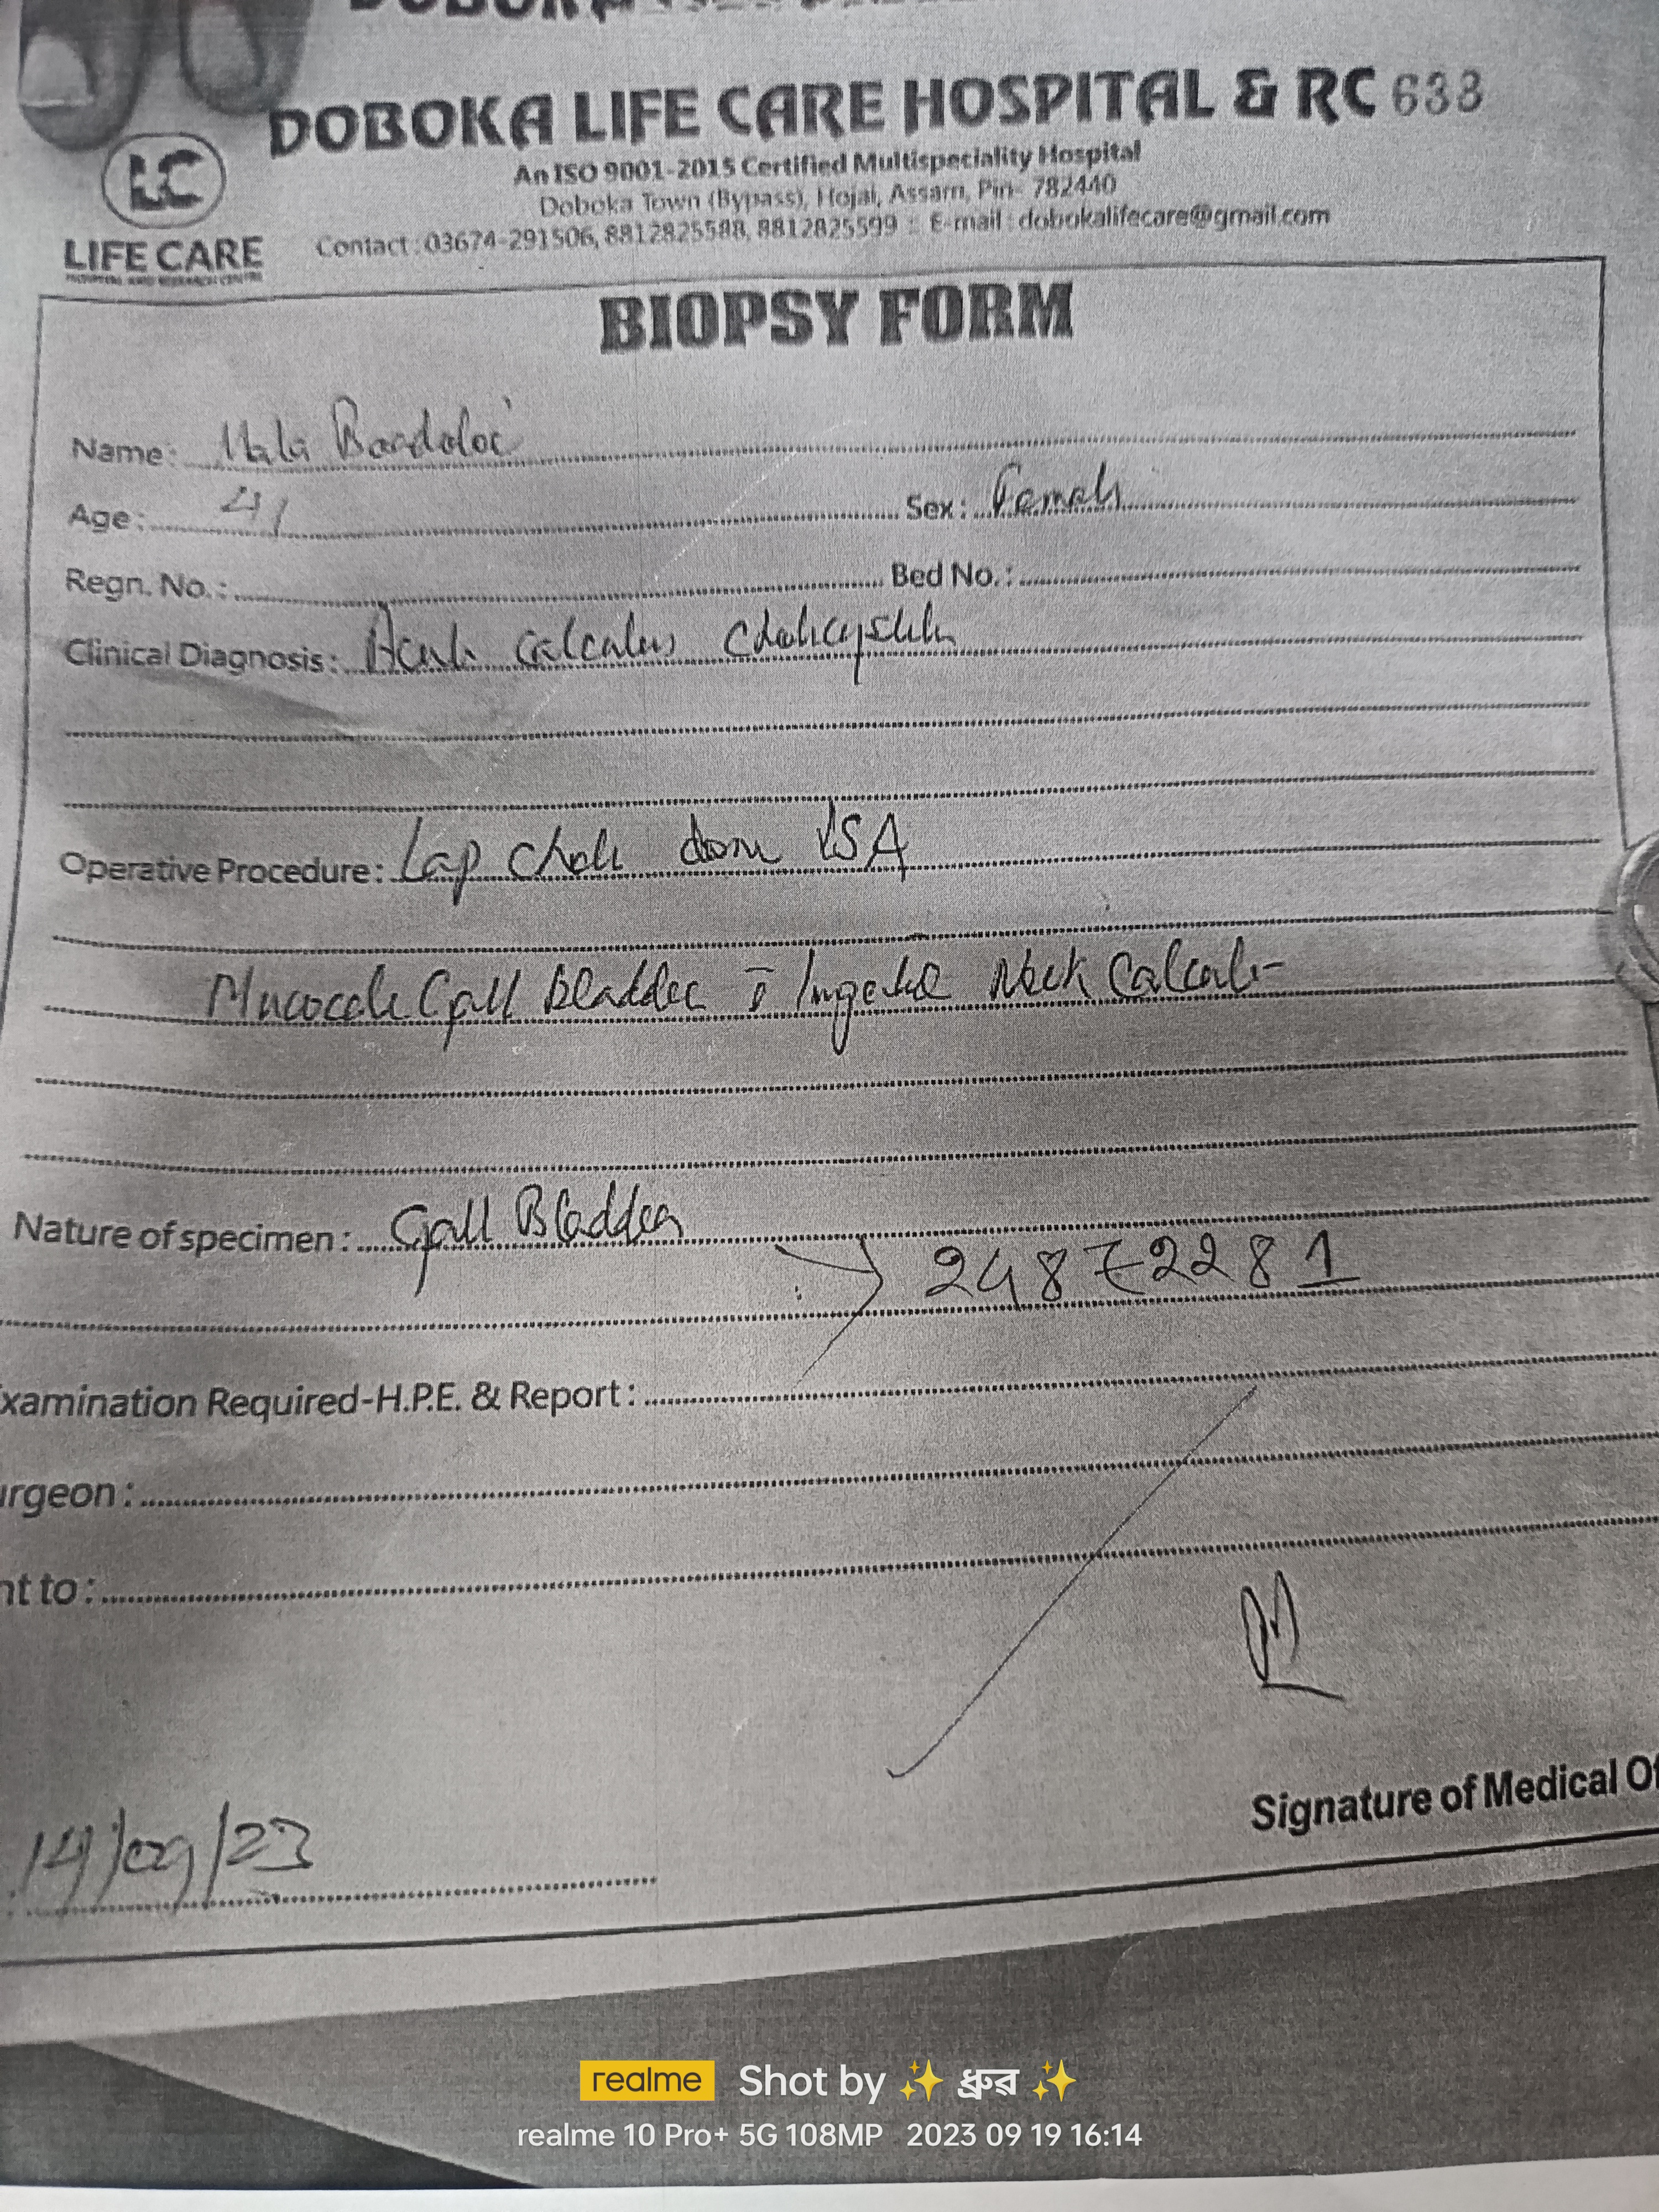 DOBOKA LIFE CARE HOSPITAL & RC 633
An ISO 9001-2015 Certified Multispeciality Hospital
Doboka Town (Bypass), Hojai, Assam, Pin- 782440
Contact : 03674-291506, 8812825588, 8812825599 : E-mail : dobokalifecare@gmail.com
LC
LIFE CARE
HOSPITAL AND RESEARCH CENTRE
BIOPSY FORM
Name: Bordoloi
Age: 41 Sex: Female
Regn. No.: Bed No.:
Clinical Diagnosis: Acute Calculus Cholecystitis
Operative Procedure: Lap Chole done
Mucocele Gall Bladder Neck Calculi
Nature of specimen: Gall Bladder
24872281
xamination Required-H.P.E. & Report:
urgeon:
nt to:
Signature of Medical Of
14/09/23
realme Shot by ✨ ধ্ৰুৱ ✨
realme 10 Pro+ 5G 108MP 2023 09 19 16:14